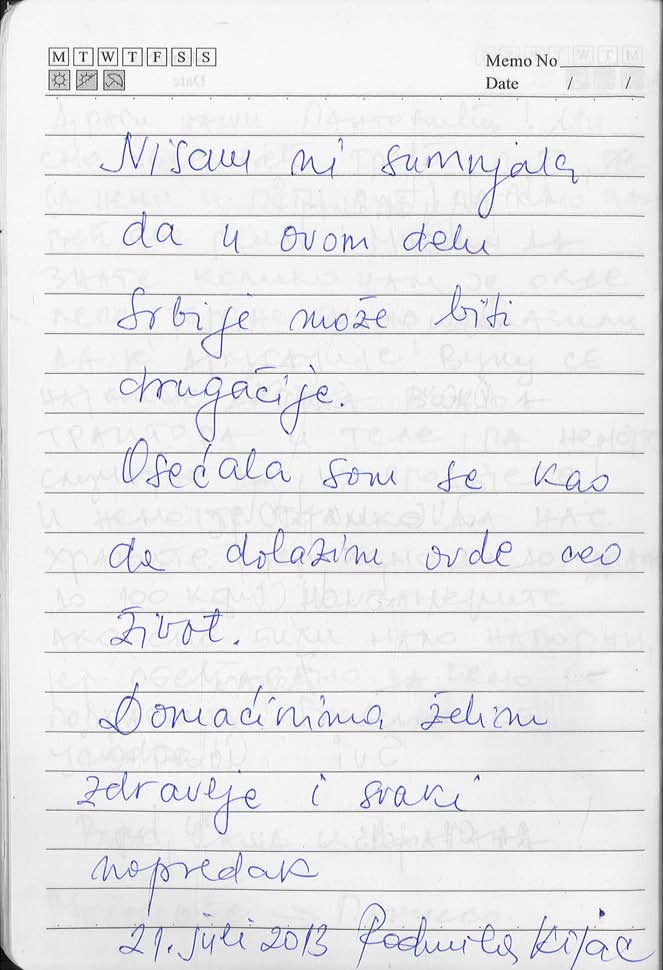 M T W T F S S
Memo No
Date / /
Nisam ni sumnjala
da u ovom delu
Srbije može biti
drugačije.
Osećala sam se kao
da dolazim ovde ceo
život.
Domaćinima želim
zdravlje i svaki
napredak
21. juli 2013 Radmila Kijac